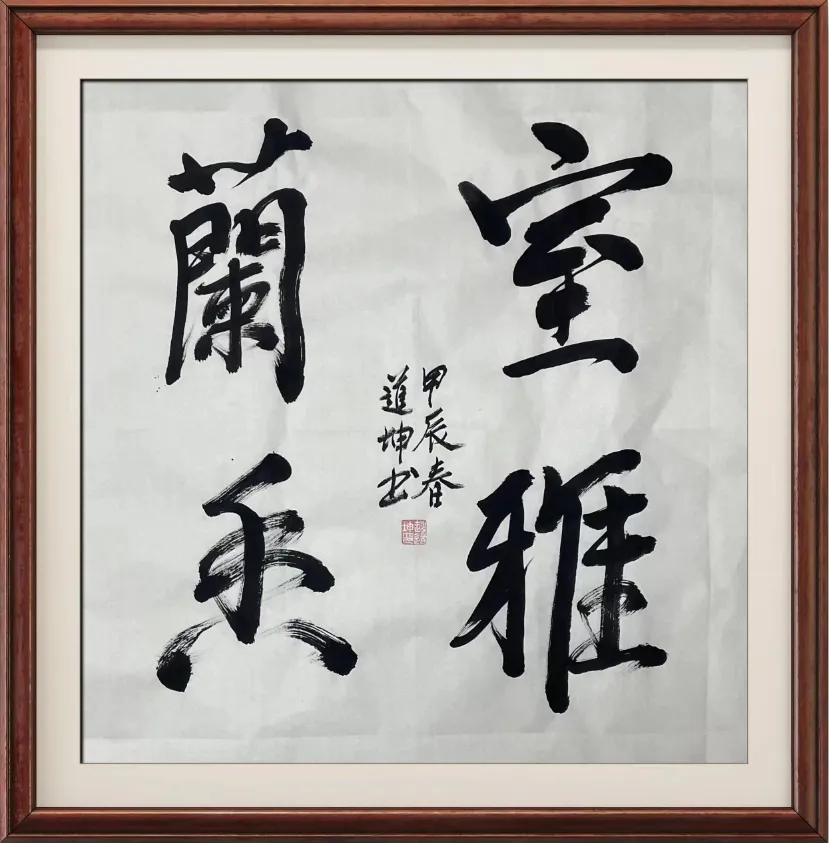 室雅
蘭香
甲辰春
道坤书